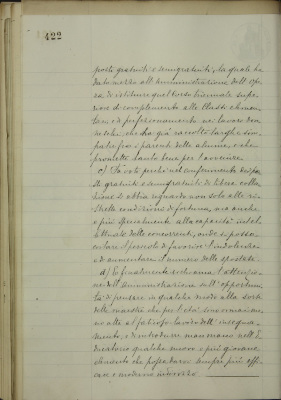 422
posti gratuiti e semigratuiti, la quale ha
dato mezzo all'Amministrazione dell'Ope-
ra di istituire quel corso biennale supe-
riore di complemento alle Classi elemen-
tari e di perfezionamento nei lavori don-
neschi, che ha già raccolto larghe sim-
patie fra i parenti delle alunne, e che
promette tanto bene per l'avvenire.
c) Fa voti perchè nel conferimento dei po-
sti gratuiti e semigratuiti di libera colla-
zione si abbia riguardo non solo alle ri-
strette condizioni di fortuna, ma anche
e più specialmente alla capacità intel-
lettuale delle concorrenti, onde si possa
evitare il pericolo di favorire l'indolenza
e di aumentare il numero delle spostate.
d) E finalmente richiama l'attenzio-
ne dell'Amministrazione sull'opportuni-
tà di pensare in qualche modo alla sorte
delle maestre che per l'età sono ormai me-
no atte al faticoso lavoro dell'insegna-
mento, e di introdurre man mano nell'E-
ducatorio qualche nuovo e più giovane
elemento che possa dare sempre più effi-
cace e moderno indirizzo